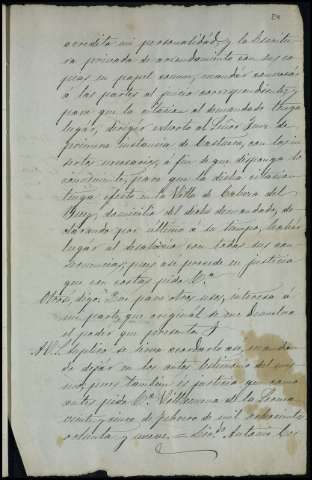 acredita mi personalidad, y la Escritu
ra privada de arrendamiento con sus co
pias en papel comun, mandar convocar
á las partes al juicio correspondiente, y
para que la citacion al demandado tenga
lugar, dirigir exhorto al Señor Juez de
primera instancia de Castuera, con los in
sertos necesarios, á fin de que disponga lo
conveniente, para que la dicha citacion
tenga efecto en la Villa de Cabeza del
Buey, domicilio del dicho demandado, de
clarando por último á su tiempo, haber
lugar al desahucio con todas sus con
secuencias; pues así procede en justicia
que con costas pido &.ª
Otrosí, digo: Que para otros usos, interesa á
mi parte, que original se me devuelva
el poder que presento, y
A V.S. suplico se sirva acordarlo así, mandan
do dejar en los autos testimonio del mis
mo, pues tambien es justicia que como
antes pido &.ª Villanueva de la Serena
veinte y cinco de febrero de mil ochocientos
ochenta y nueve. = Licdo. Antonio